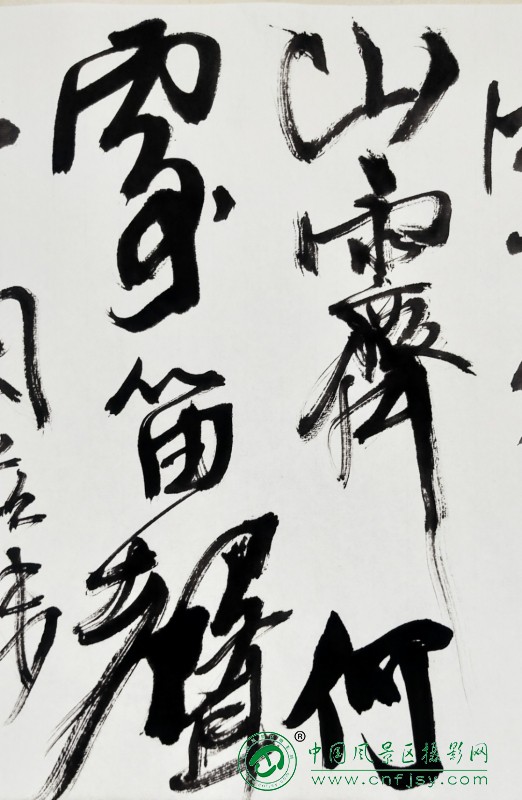 山霽何
處笛聲
®
中国风景区摄影网
www.cnfjsy.com